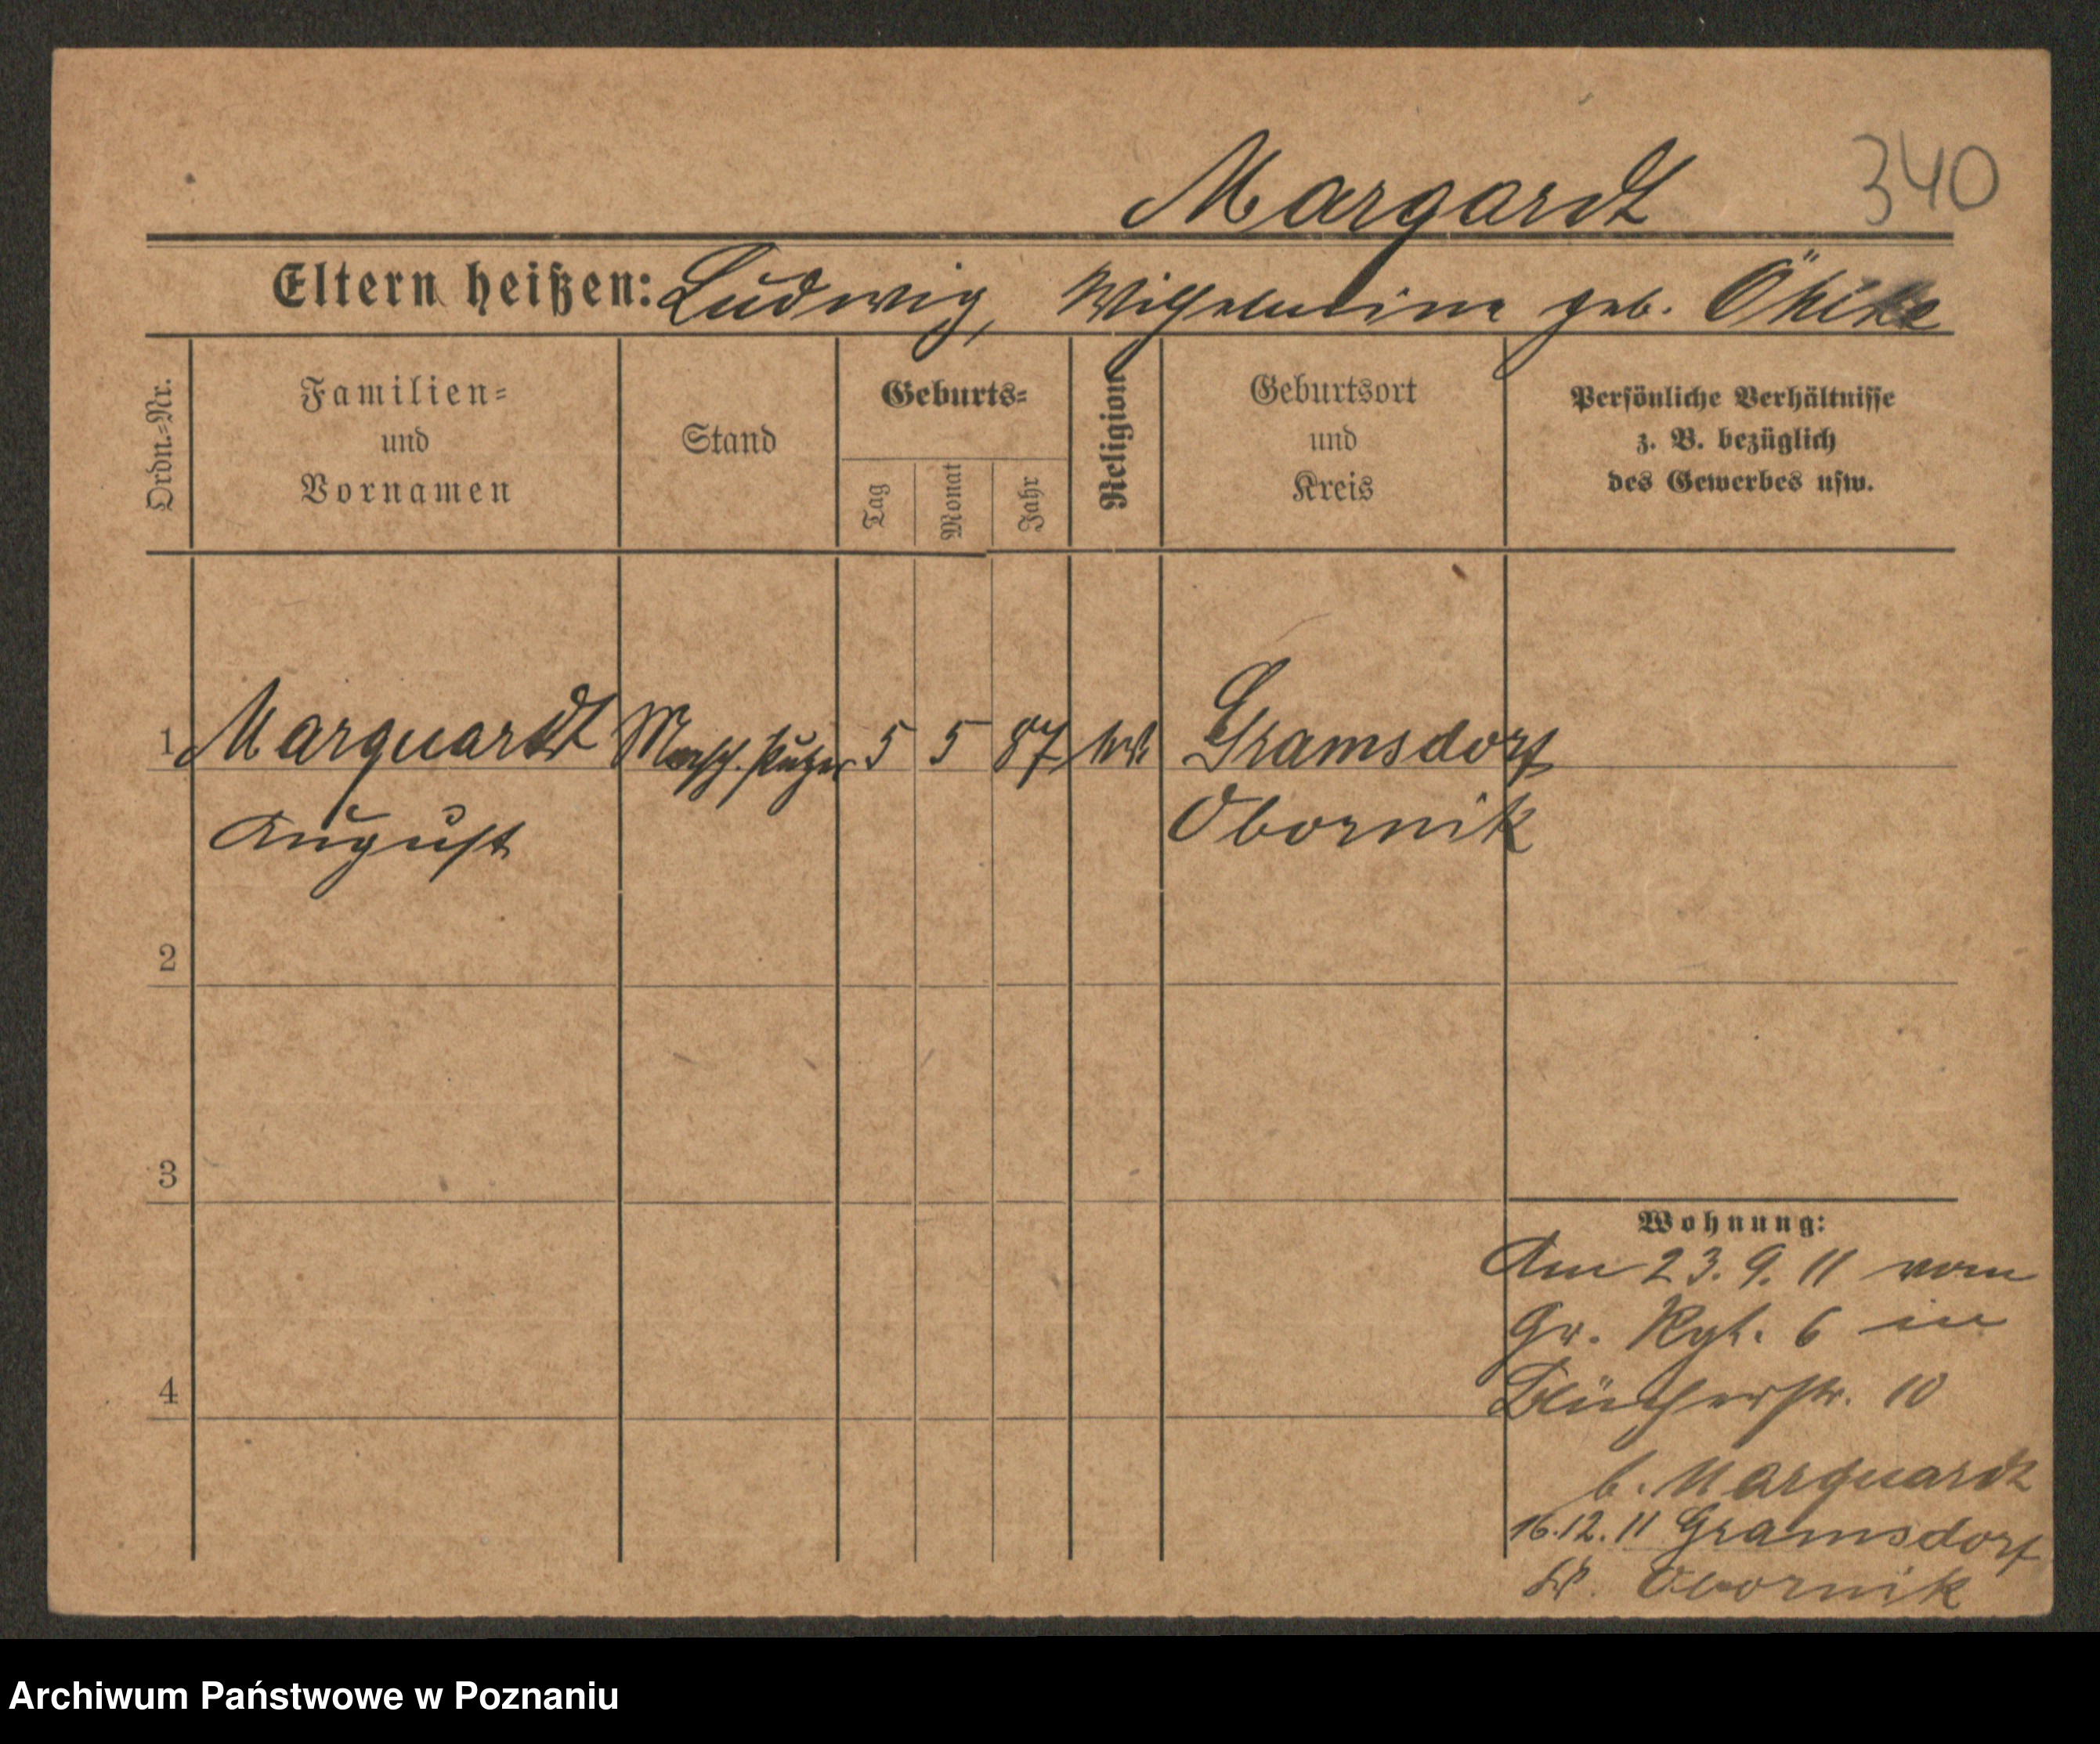 340
Margardt
Eltern heißen: Ludwig, Wilhelmine geb.
Ordn.=Nr.
Familien=
und
Vornamen
Stand
Geburts=
Tag
Monat
Jahr
Religion
Geburtsort
und
Kreis
Persönliche Verhältnisse
z. B. bezüglich
des Gewerbes usw.
1 Marquardt Masch. Putzer 5 5 87 Gramsdorf
August Obornik
2
3
4
Wohnung:
Am 23. 9. 11 vom
Gr. Rgt. 6 in
Blücherstr. 10
b. Marquardt
16.12.11 Gramsdorf
Kr. Obornik
Archiwum Państwowe w Poznaniu